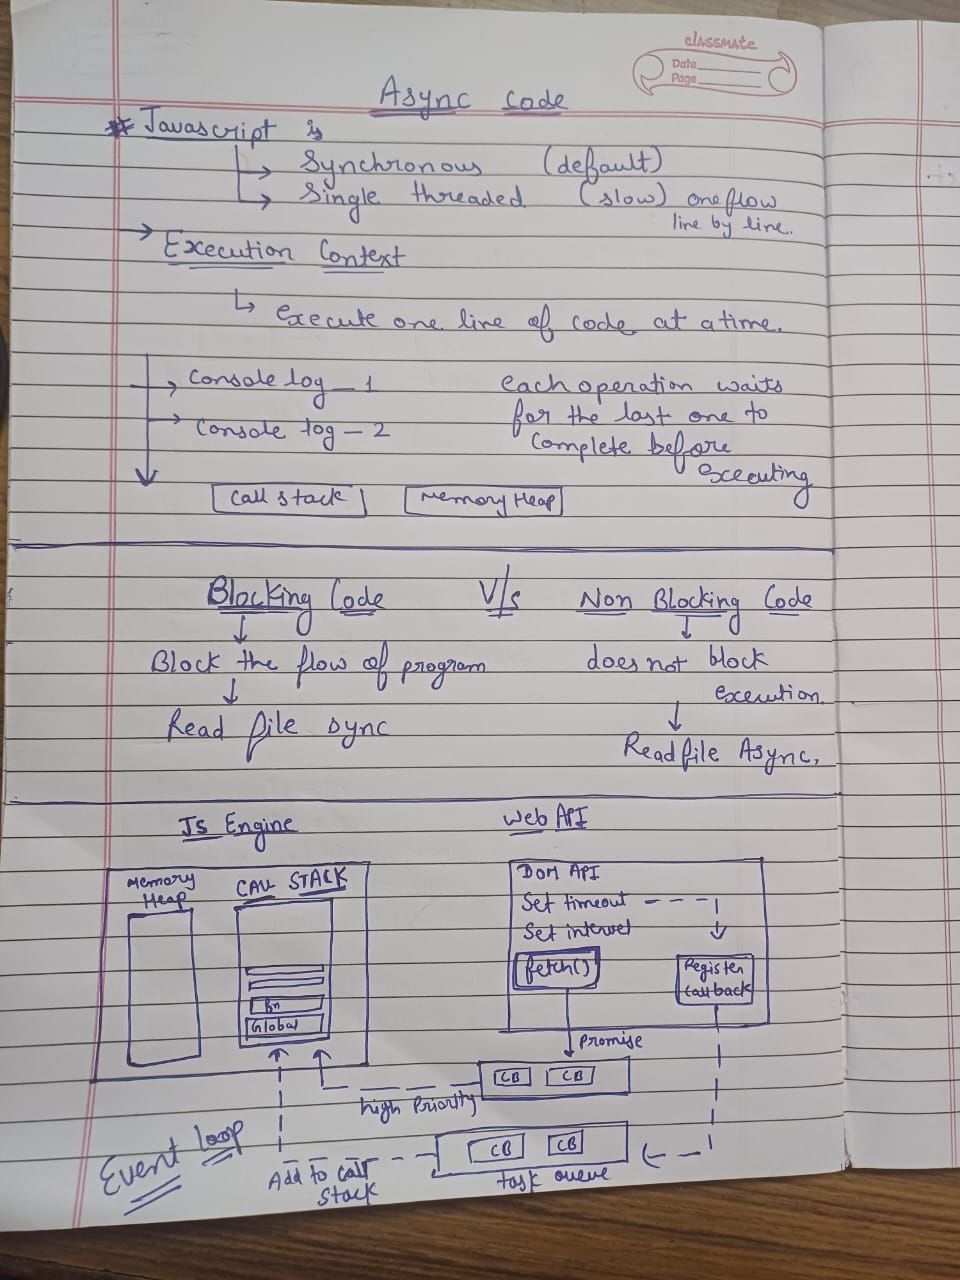 classmate
Date
Page
Async Code
# Javascript is
Synchronous (default)
Single threaded (slow) one flow
line by line.
Execution Context
execute one line of code at a time.
Console log - 1
Console log - 2
each operation waits
for the last one to
complete before
executing
Call stack
Memory Heap
Blocking Code V/s Non Blocking Code
Block the flow of program
does not block
execution.
Read file sync
Read file Async,
JS Engine
Web API
Memory
Heap
CALL STACK
fn
Global
DOM API
Set timeout
Set intervel
fetch()
Register
Callback
Promise
CB CB
high Priority
CB CB
task queue
Add to call
stack
Event loop